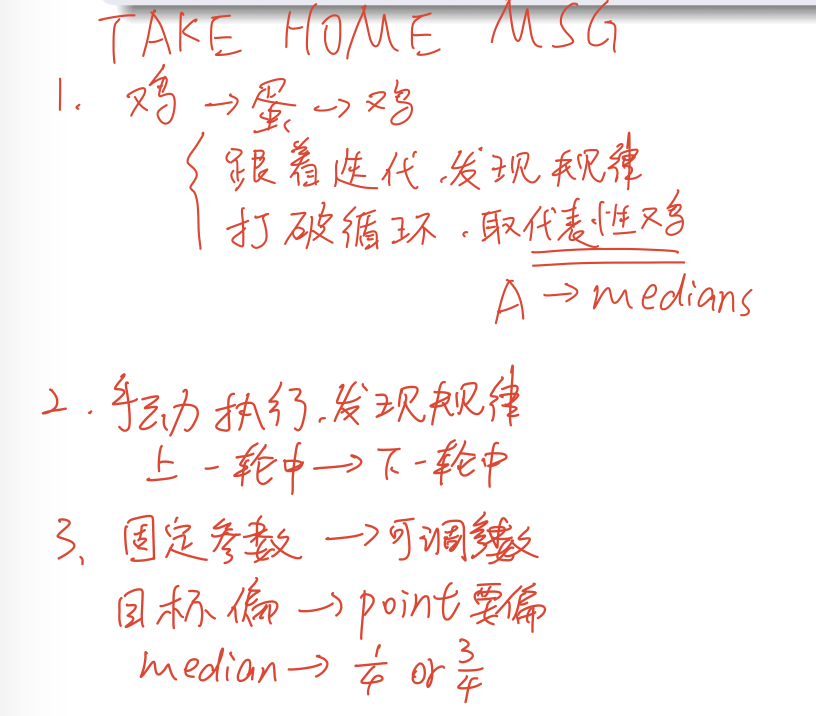 TAKE HOME MSG
1. 鸡→蛋→鸡
跟着迭代,发现规律
打破循环.取代表性鸡
A→medians
2.手动执行,发现规律
上一轮中→下一轮中
3、固定参数→可调参数
目标偏→point要偏
median→1/4 or 3/4